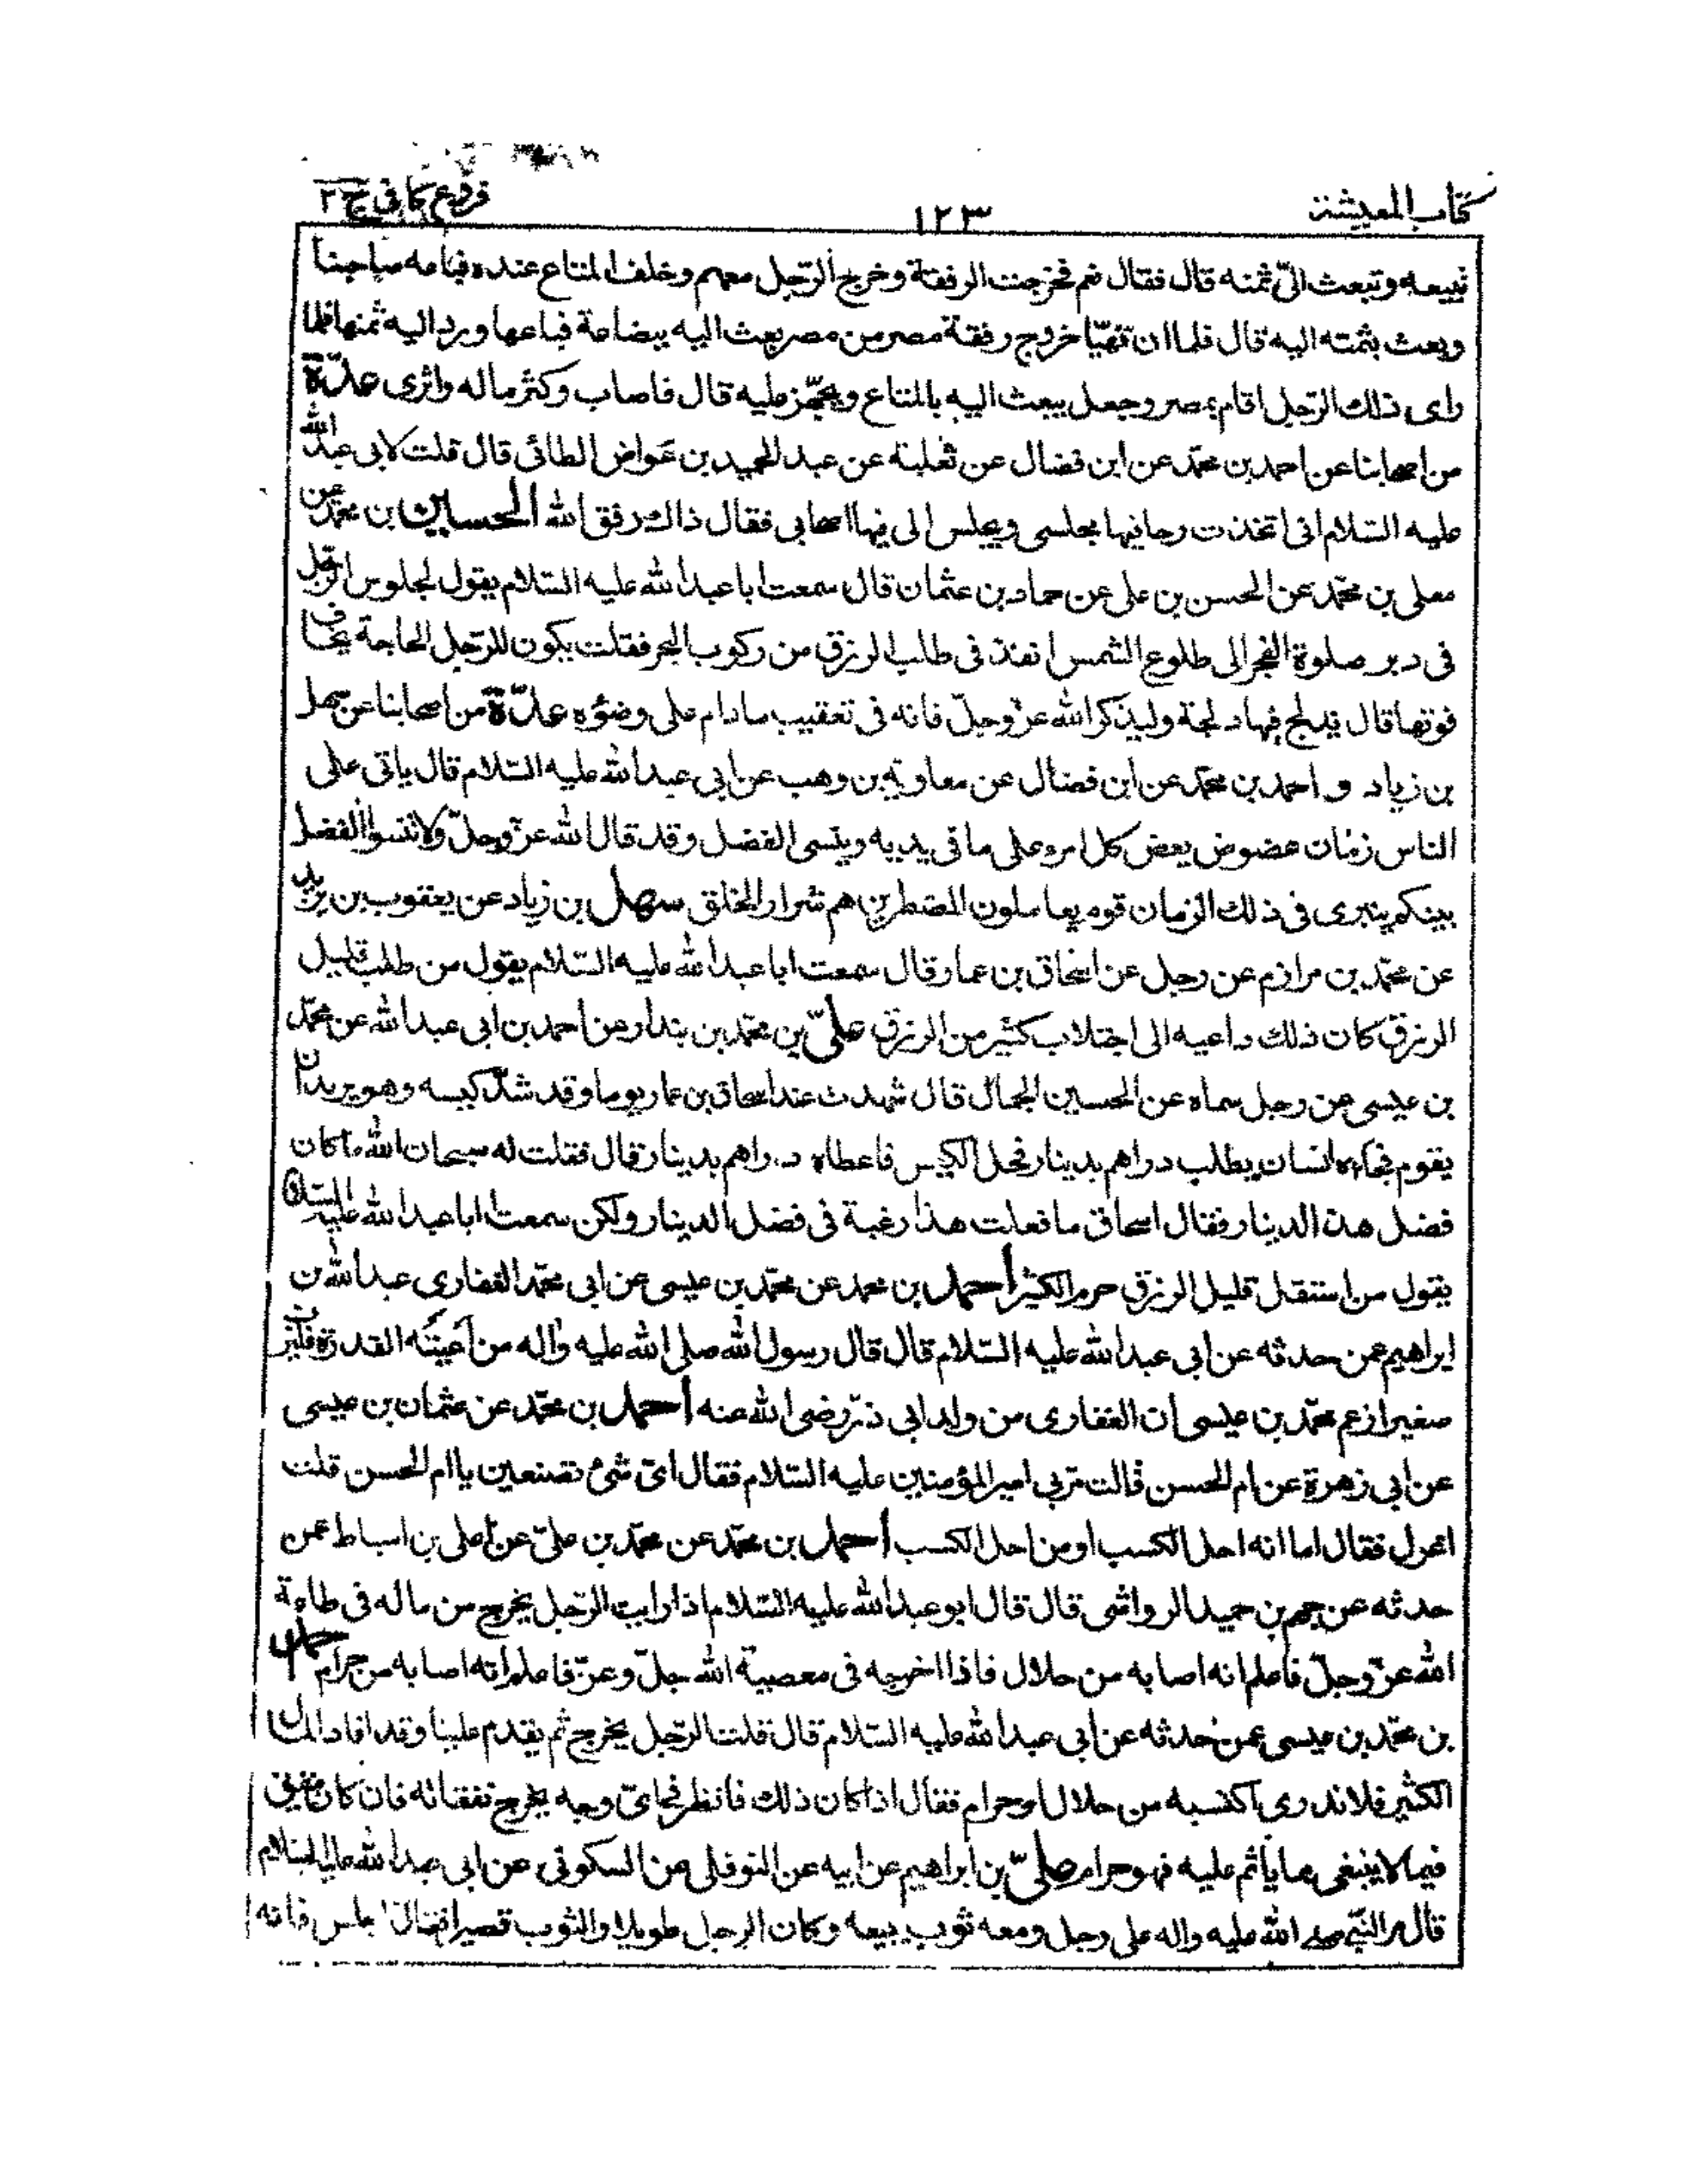 كتاب المعيشة
١٢٣
فروع كافى ج ٢
تبيعه وتبعث الىّ ثمنه قال فقال نعم فخرجت الرفقة وخرج الرّجل معهم وخلف المتاع عنده فباعه صاحبنا
وبعث بثمنه اليه قال فلما ان تهيّا خروج رفقة مصر من مصر بعث اليه ببضاعة فباعها ورد اليه ثمنها فلما
راى ذلك الرّجل اقام بمصر وجعل يبعث اليه بالمتاع ويجهّز عليه قال فاصاب وكثر ماله واثرى عدّة
من اصحابنا عن احمد بن محمّد عن ابن فضال عن ثعلبة عن عبد الحميد بن عواض الطائى قال قلت لابى عبد الله
عليه السّلام انى اتخذت رحا فيها مجلسى ويجلس الى فيها اصحابى فقال ذاك رفق الله الحسين بن محمّد عن
معلى بن محمّد عن الحسن بن على عن حماد بن عثمان قال سمعت ابا عبد الله عليه السّلام يقول لجلوس الرّجل
فى دبر صلوة الفجر الى طلوع الشمس انفذ فى طلب الرزق من ركوب البحر فقلت يكون للرّجل الحاجة يخاف
فوتها قال يدلج فيها دلجة وليذكر الله عزّ وجلّ فانه فى تعقيب مادام على وضوئه عدّة من اصحابنا عن سهل
بن زياد و احمد بن محمّد عن ابن فضال عن معاوية بن وهب عن ابى عبد الله عليه السّلام قال ياتى على
الناس زمان عضوض يعض كل امرء على ما فى يديه وينسى الفضل وقد قال الله عزّ وجلّ ولا تنسوا الفضل
بينكم ينبرى فى ذلك الزمان قوم يعاملون المضطرين هم شرار الخلق سهل بن زياد عن يعقوب بن يزيد
عن محمّد بن مرازم عن رجل عن اسحاق بن عمار قال سمعت ابا عبد الله عليه السّلام يقول من طلب قليل
الرزق كان ذلك داعيه الى اجتلاب كثير من الرزق علىّ بن محمّد بن بندار عن احمد بن ابى عبد الله عن محمّد
بن عيسى عن رجل سماه عن الحسين الجمال قال شهدت عند اسحاق بن عمار يوما وقد شدّ كيسه وهو يريد ان
يقوم فجاءه انسان يطلب دراهم بدينار فحل الكيس فاعطاه دراهم بدينار قال فقلت له سبحان الله ما كان
فضل هذا الدينار فقال اسحاق ما فعلت هذا رغبة فى فضل الدينار ولكن سمعت ابا عبد الله عليه السّلام
يقول من استقل قليل الرزق حرم الكثير احمد بن محمد عن محمّد بن عيسى عن ابى محمّد الغفارى عبد الله بن
ابراهيم عمن حدثه عن ابى عبد الله عليه السّلام قال قال رسول الله صلى الله عليه واله من اعيته القدرة فليرب
صغيرا زعم محمّد بن عيسى ان الغفارى من ولد ابى ذرّ رضى الله عنه احمد بن محمّد عن عثمان بن عيسى
عن ابى زهرة عن ام الحسن قالت مر بى امير المؤمنين عليه السّلام فقال اىّ شئ تصنعين يا ام الحسن قلت
اغزل فقال اما انه احل الكسب او من احل الكسب احمد بن محمّد عن محمّد بن علىّ عن على بن اسباط عمن
حدثه عن جهم بن حميد الرواشى قال قال ابو عبد الله عليه السّلام اذا رايت الرّجل يخرج من ماله فى طاعة
الله عزّ وجلّ فاعلم انه اصابه من حلال فاذا اخرجه فى معصية الله جلّ وعزّ فاعلم انه اصابه من حرام احمد
بن محمّد بن عيسى عمن حدثه عن ابى عبد الله عليه السّلام قال قلت الرّجل يخرج ثم يقدم علينا وقد افاد المال
الكثير فلا ندرى اكتسبه من حلال او حرام فقال اذا كان ذلك فانظر فى اىّ وجه يخرج نفقاته فان كان ينفق
فيما لا ينبغى مما ياثم عليه فهو حرام علىّ بن ابراهيم عن ابيه عن النوفلى عن السكونى عن ابى عبد الله عليه السّلام
قال مر النبّى صلى الله عليه واله على رجل ومعه ثوب يبيعه وكان الرجل طويلا والثوب قصيرا فقال اجلس فانه